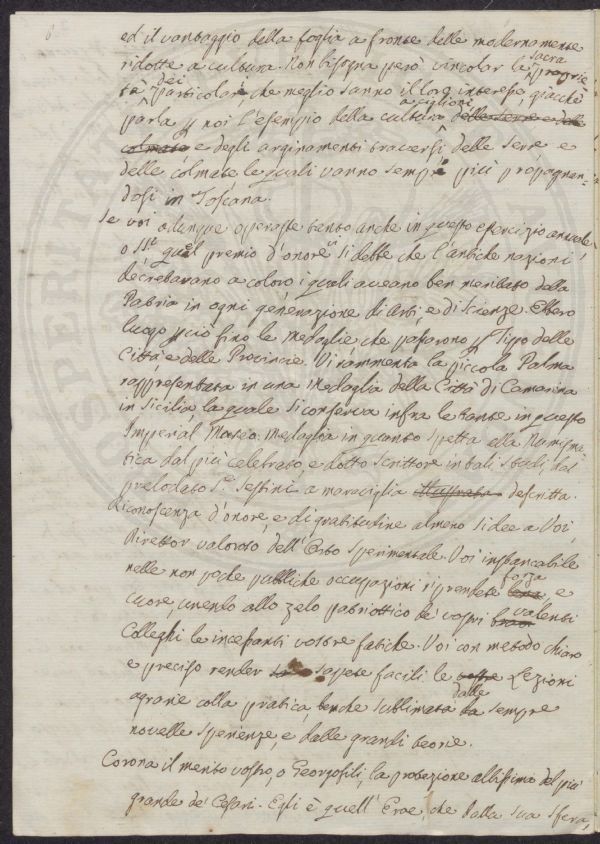 ed il vantaggio della foglia a fronte delle modernamente
ridotte a cultura. Non bisogna però vincolar la sacra proprie
tà dei particolari, che meglio sanno il loro interesse, giacchè
parla p noi l'esempio della cultura a ciglioni delle serre e delle
colmate e degli arginamenti traversi delle serre e
delle colmate le quali vanno sempre più propagan-
dosi in Toscana.
Se voi adunque operaste tanto anche in questo esercizio annuale
o SS.ri qual premio d'onore si dette che l'antiche nazioni
decretavano a coloro i quali aveano ben meritato dalla
Patria in ogni generazione di Arti, e di Scienze. Ebbero
luogo p ciò fino le medaglie che passarono p Tipo delle
Città e delle Provincie. Vi rammenta la piccola Palma
rappresentata in una medaglia della Città di Camarina
in Sicilia, la quale si conserva infra le tante in questo
Imperial Museo. Medaglia in quanto spetta alla Numisma
tica dal più celebrato, e dotto scrittore in tali studi, dal
prelodato S.r Sestini a maraviglia illustrata descritta.
Riconoscenza d'onore, e di gratitudine almeno si dee a Voi,
Direttor valoroso dell'Orto sperimentale. Voi instancabile
nelle non poche pubbliche occupazioni riprendete lena forza e
cuore, unendo allo zelo patriottico de' vostri bravi valenti
Colleghi le incessanti vostre fatiche. Voi con metodo chiaro
e preciso render sapete facili le vostre Lezioni
agrarie colla pratica, benche sublimata da dalle sempre
novelle sperienze, e dalle grandi teorie.
Corona il merito vostro, o Georgofili, la protezione altissima del più
grande de' Cesari. Egli è quell'Eroe, che dalla sua sfera,